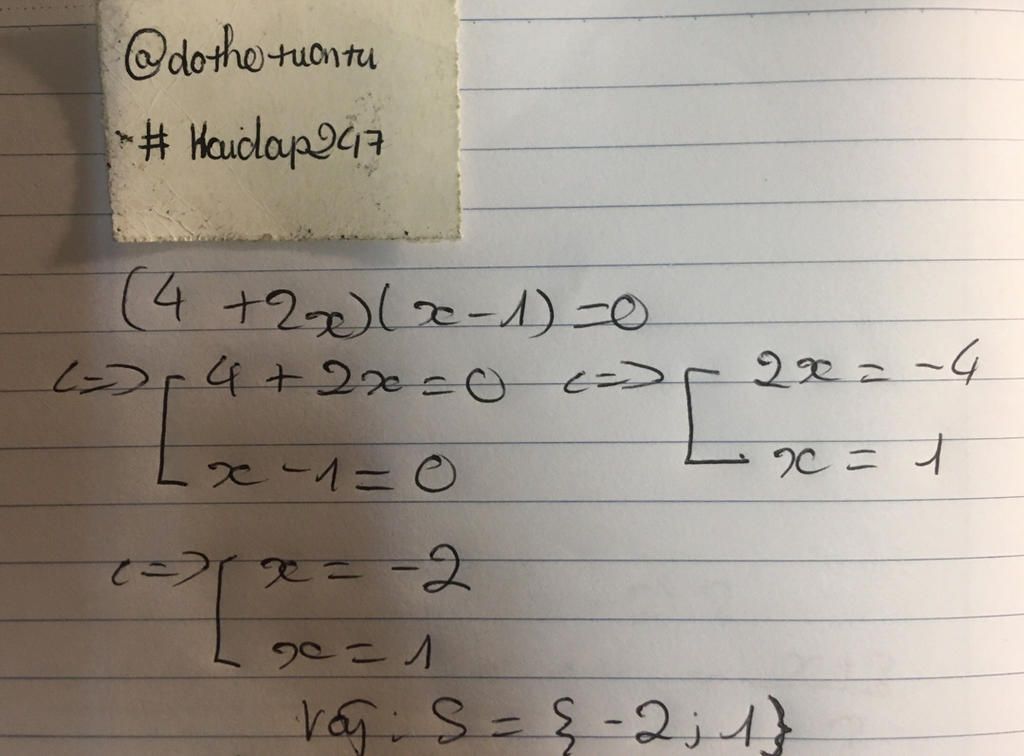 @dothetuantu
# Hoidap247
(4 + 2x)(x - 1) = 0
<=> [ 4 + 2x = 0 <=> [ 2x = -4
x - 1 = 0 x = 1
<=> [ x = -2
x = 1
Vậy: S = {-2; 1}